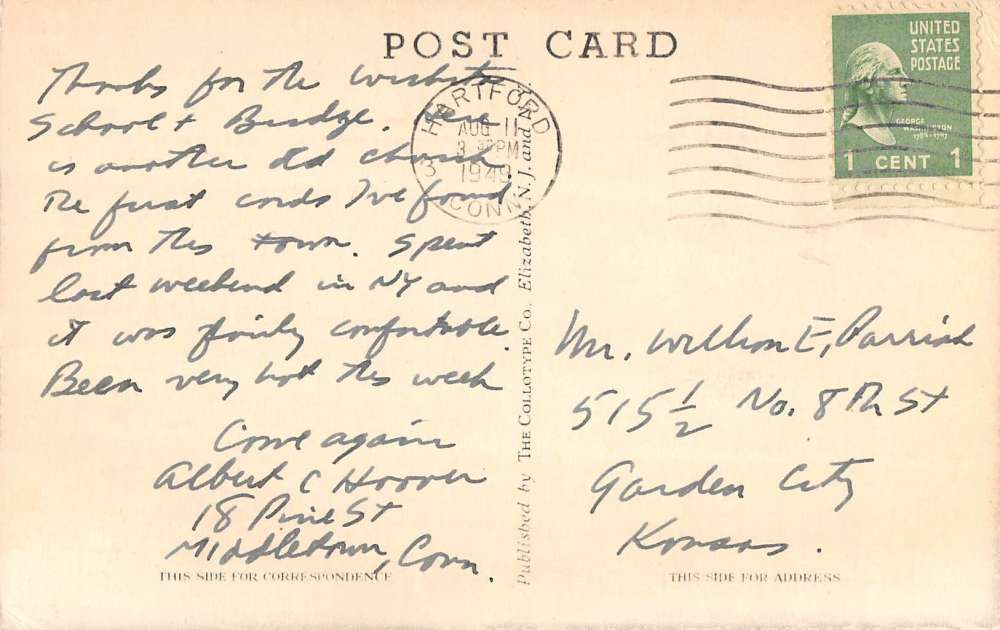 POST CARD
Thanks for the Wichita
School + Bridge. Here
is another old church
The first cards I've found
from this town. Spent
last weekend in NY and
it was fairly comfortable.
Been very hot this week
Come again
Albert C Hoover
18 Pine St
Middletown, Conn.
THIS SIDE FOR CORRESPONDENCE
HARTFORD
AUG 11
PM
1949
CONN.
3
Published by THE COLLOTYPE CO., Elizabeth, N. J. and N. Y.
UNITED
STATES
POSTAGE
GEORGE
WASHINGTON
1789-1797
1 CENT 1
Mr. William E. Parrish
515 1/2 No. 8th St
Garden City
Kansas.
THIS SIDE FOR ADDRESS